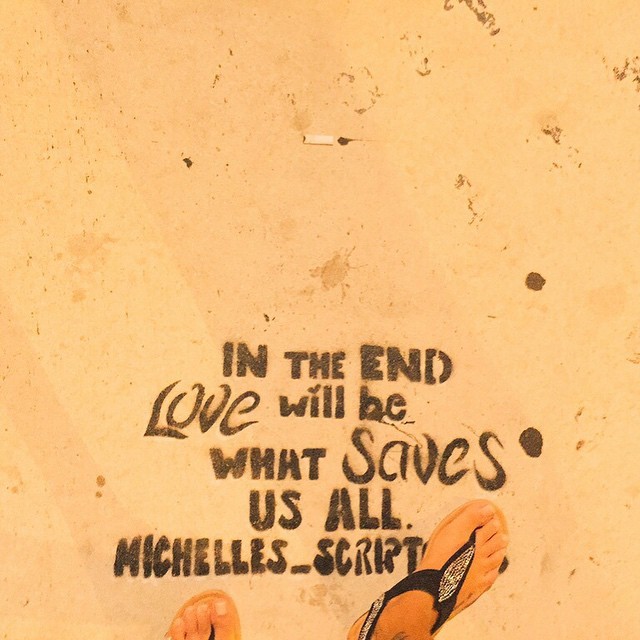 IN THE END
Love will be
WHAT Saves
US ALL.
MICHELLES_SCRIPT